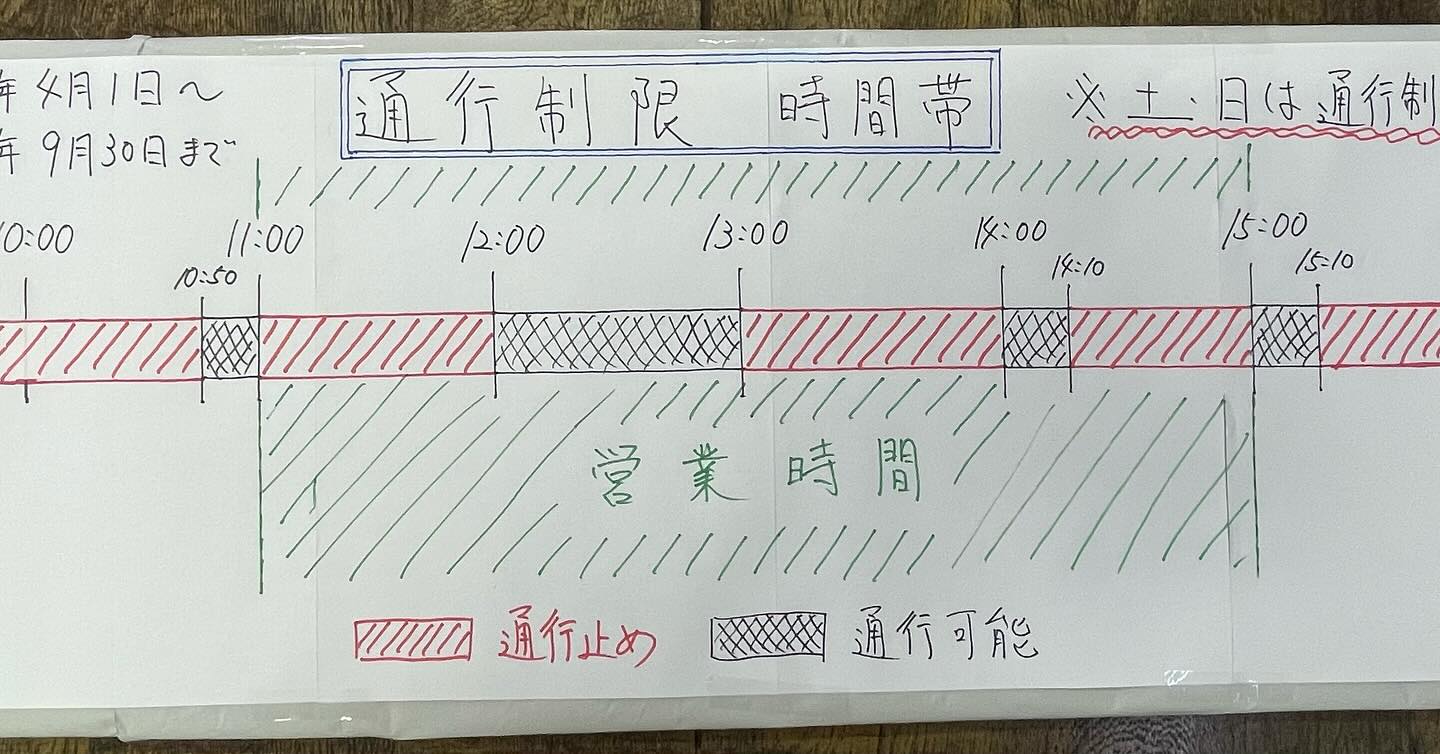 年4月1日～
年9月30日まで
通行制限 時間帯
※土・日は通行制
10:00
11:00
12:00
13:00
14:00
15:00
10:50
14:10
15:10
営業時間
通行止め
通行可能